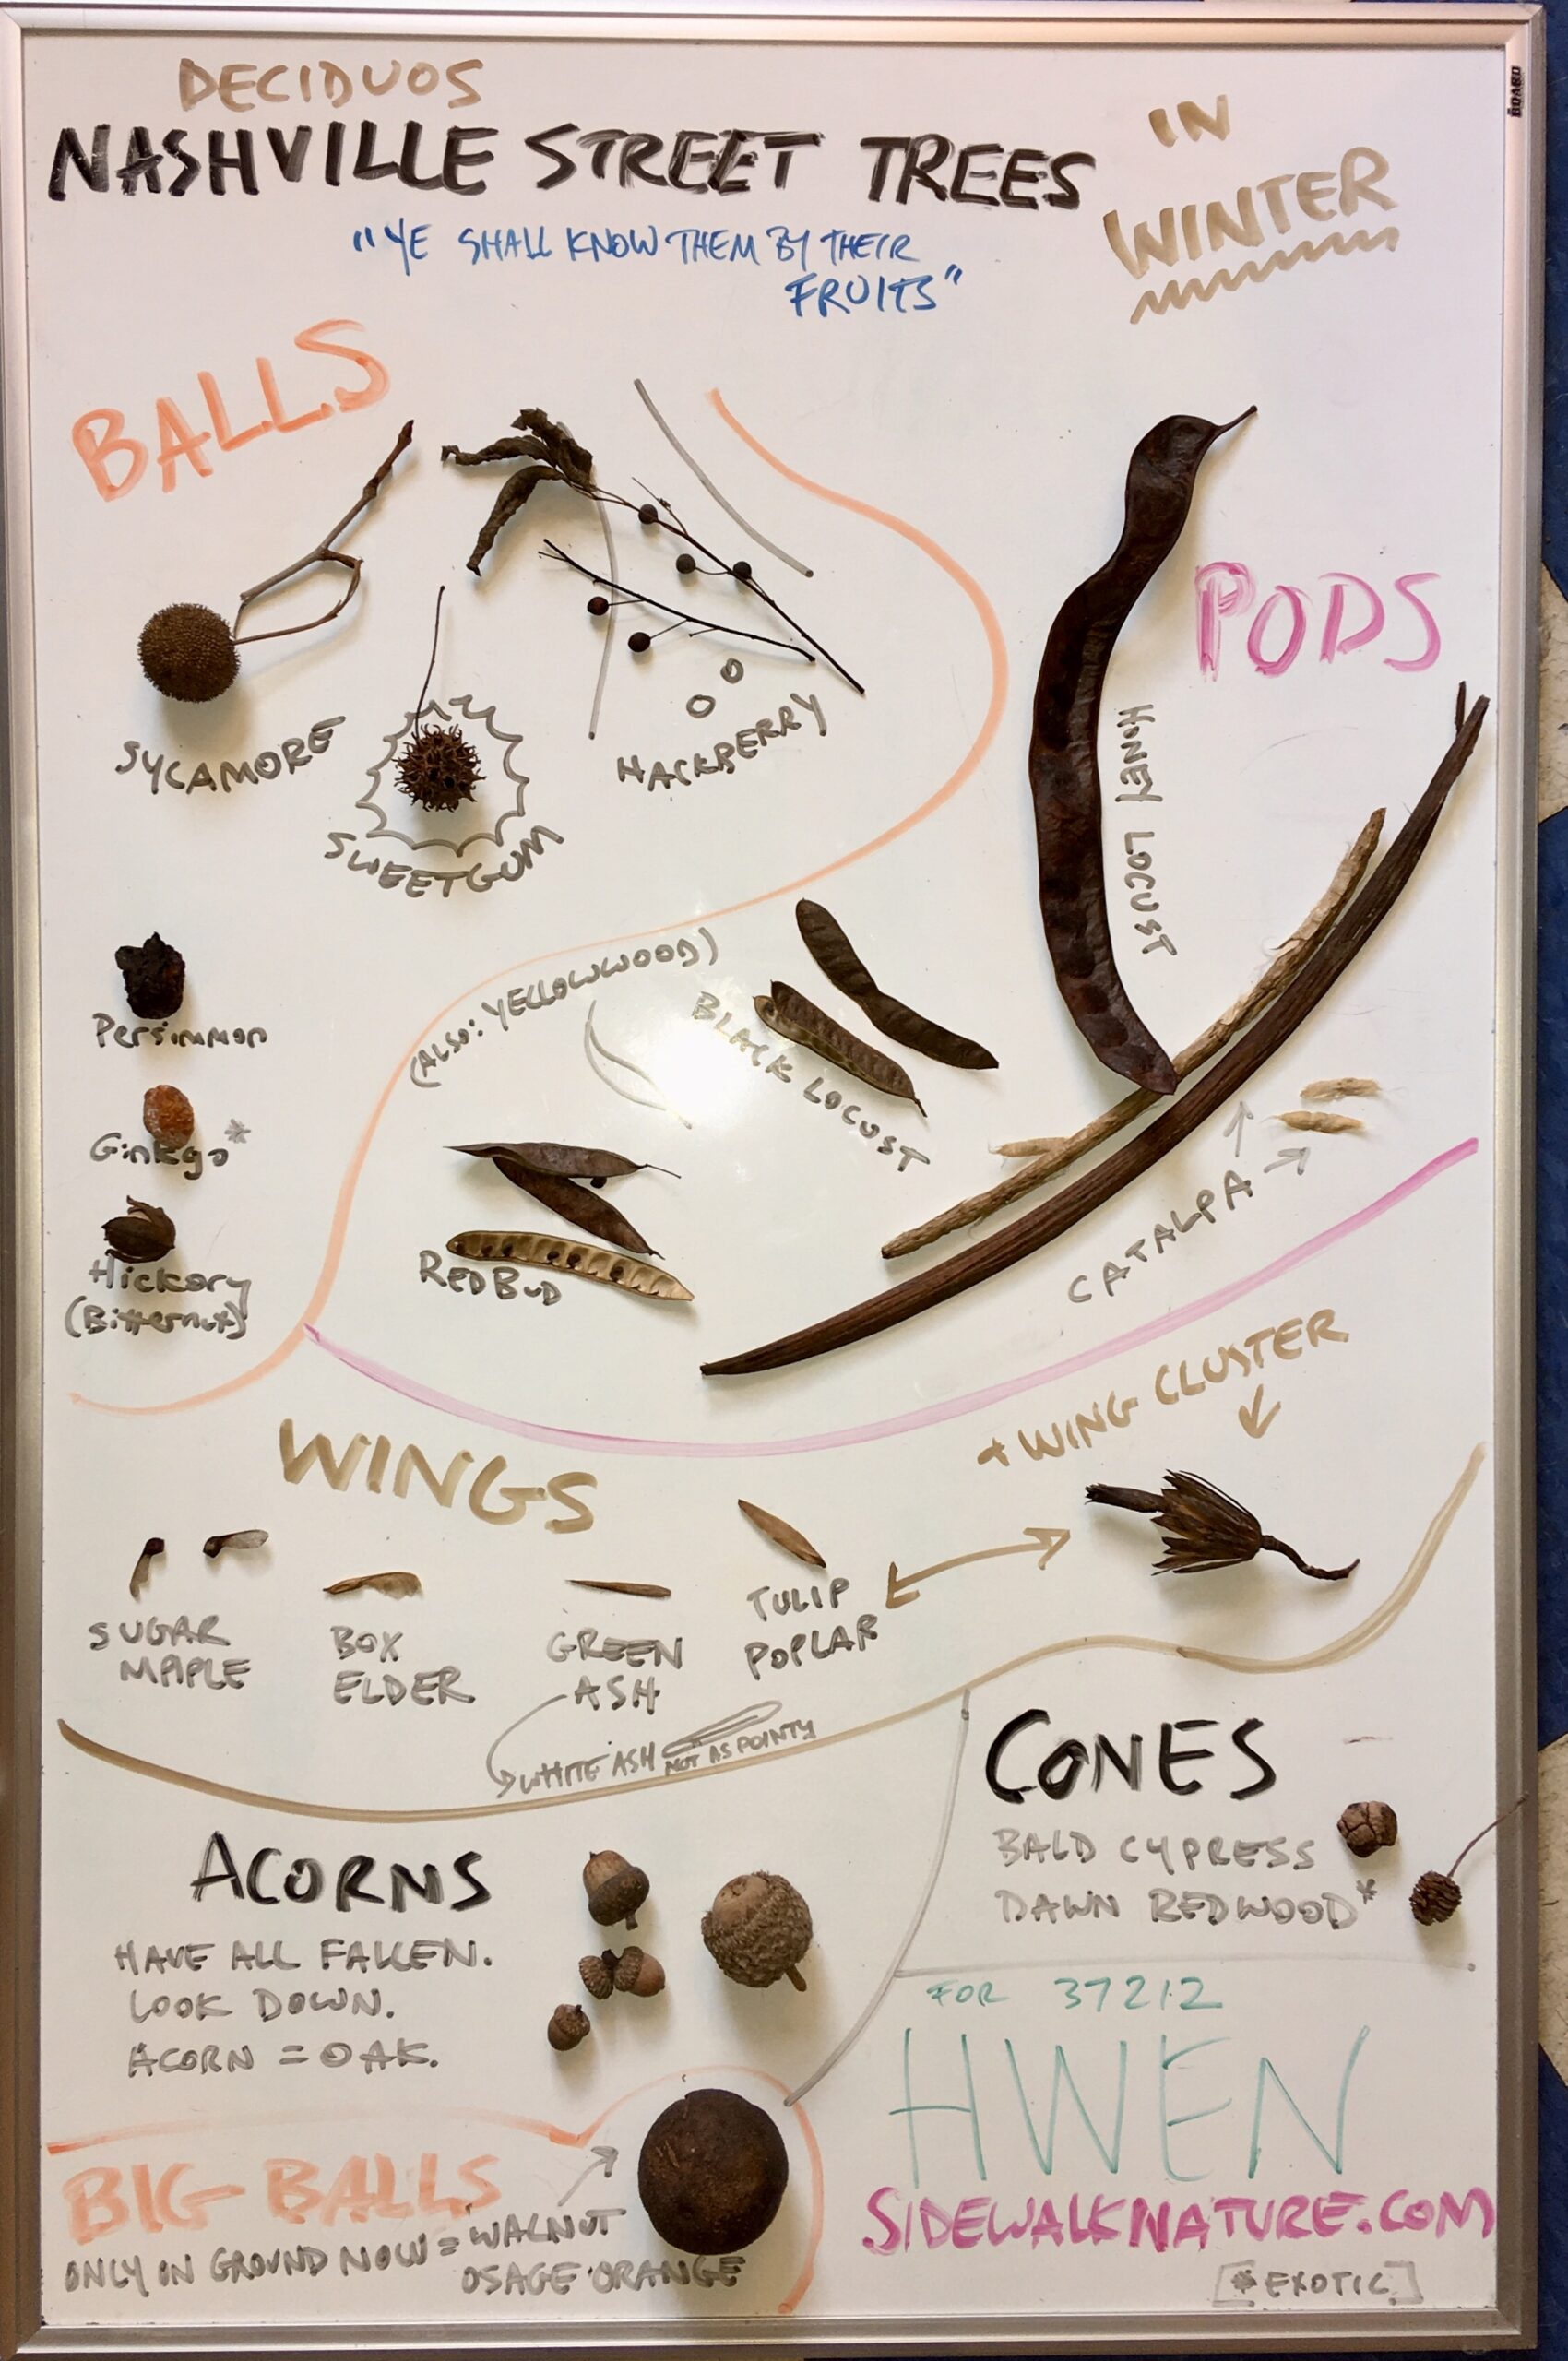 DECIDUOS
NASHVILLE STREET TREES
IN
WINTER
"YE SHALL KNOW THEM BY THEIR
FRUITS"
BALLS
SYCAMORE
SWEETGUM
HACKBERRY
Persimmon
Ginkgo*
Hickory
(Bitternut)
PODS
HONEY LOCUST
(ALSO: YELLOWWOOD)
BLACK LOCUST
REDBUD
CATALPA
WINGS
+ WING CLUSTER
SUGAR
MAPLE
BOX
ELDER
GREEN
ASH
TULIP
POPLAR
WHITE ASH NOT AS POINTY
ACORNS
HAVE ALL FALLEN.
LOOK DOWN.
ACORN = OAK.
CONES
BALD CYPRESS
DAWN REDWOOD*
FOR 37212
HWEN
SIDEWALKNATURE.COM
[*EXOTIC]
BIG BALLS
ONLY ON GROUND NOW = WALNUT
OSAGE ORANGE
BOARD